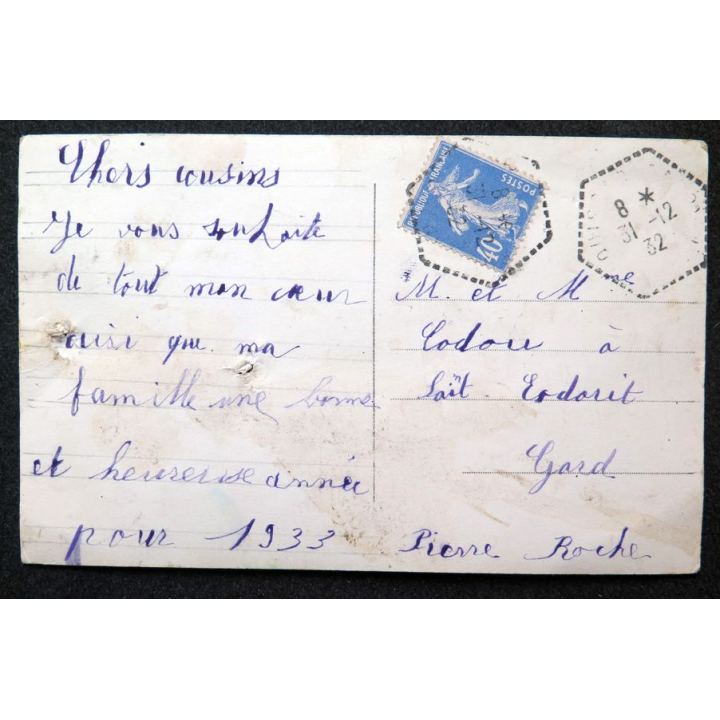 Chers cousins
Je vous souhaite
de tout mon cœur
aisi que ma
famille une bonne
et heureuse année
pour 1933
POSTES
40c
8 *
31-12
32
M. et Mme
Codou à
Saint Eodarit
Gard
Pierre Roche